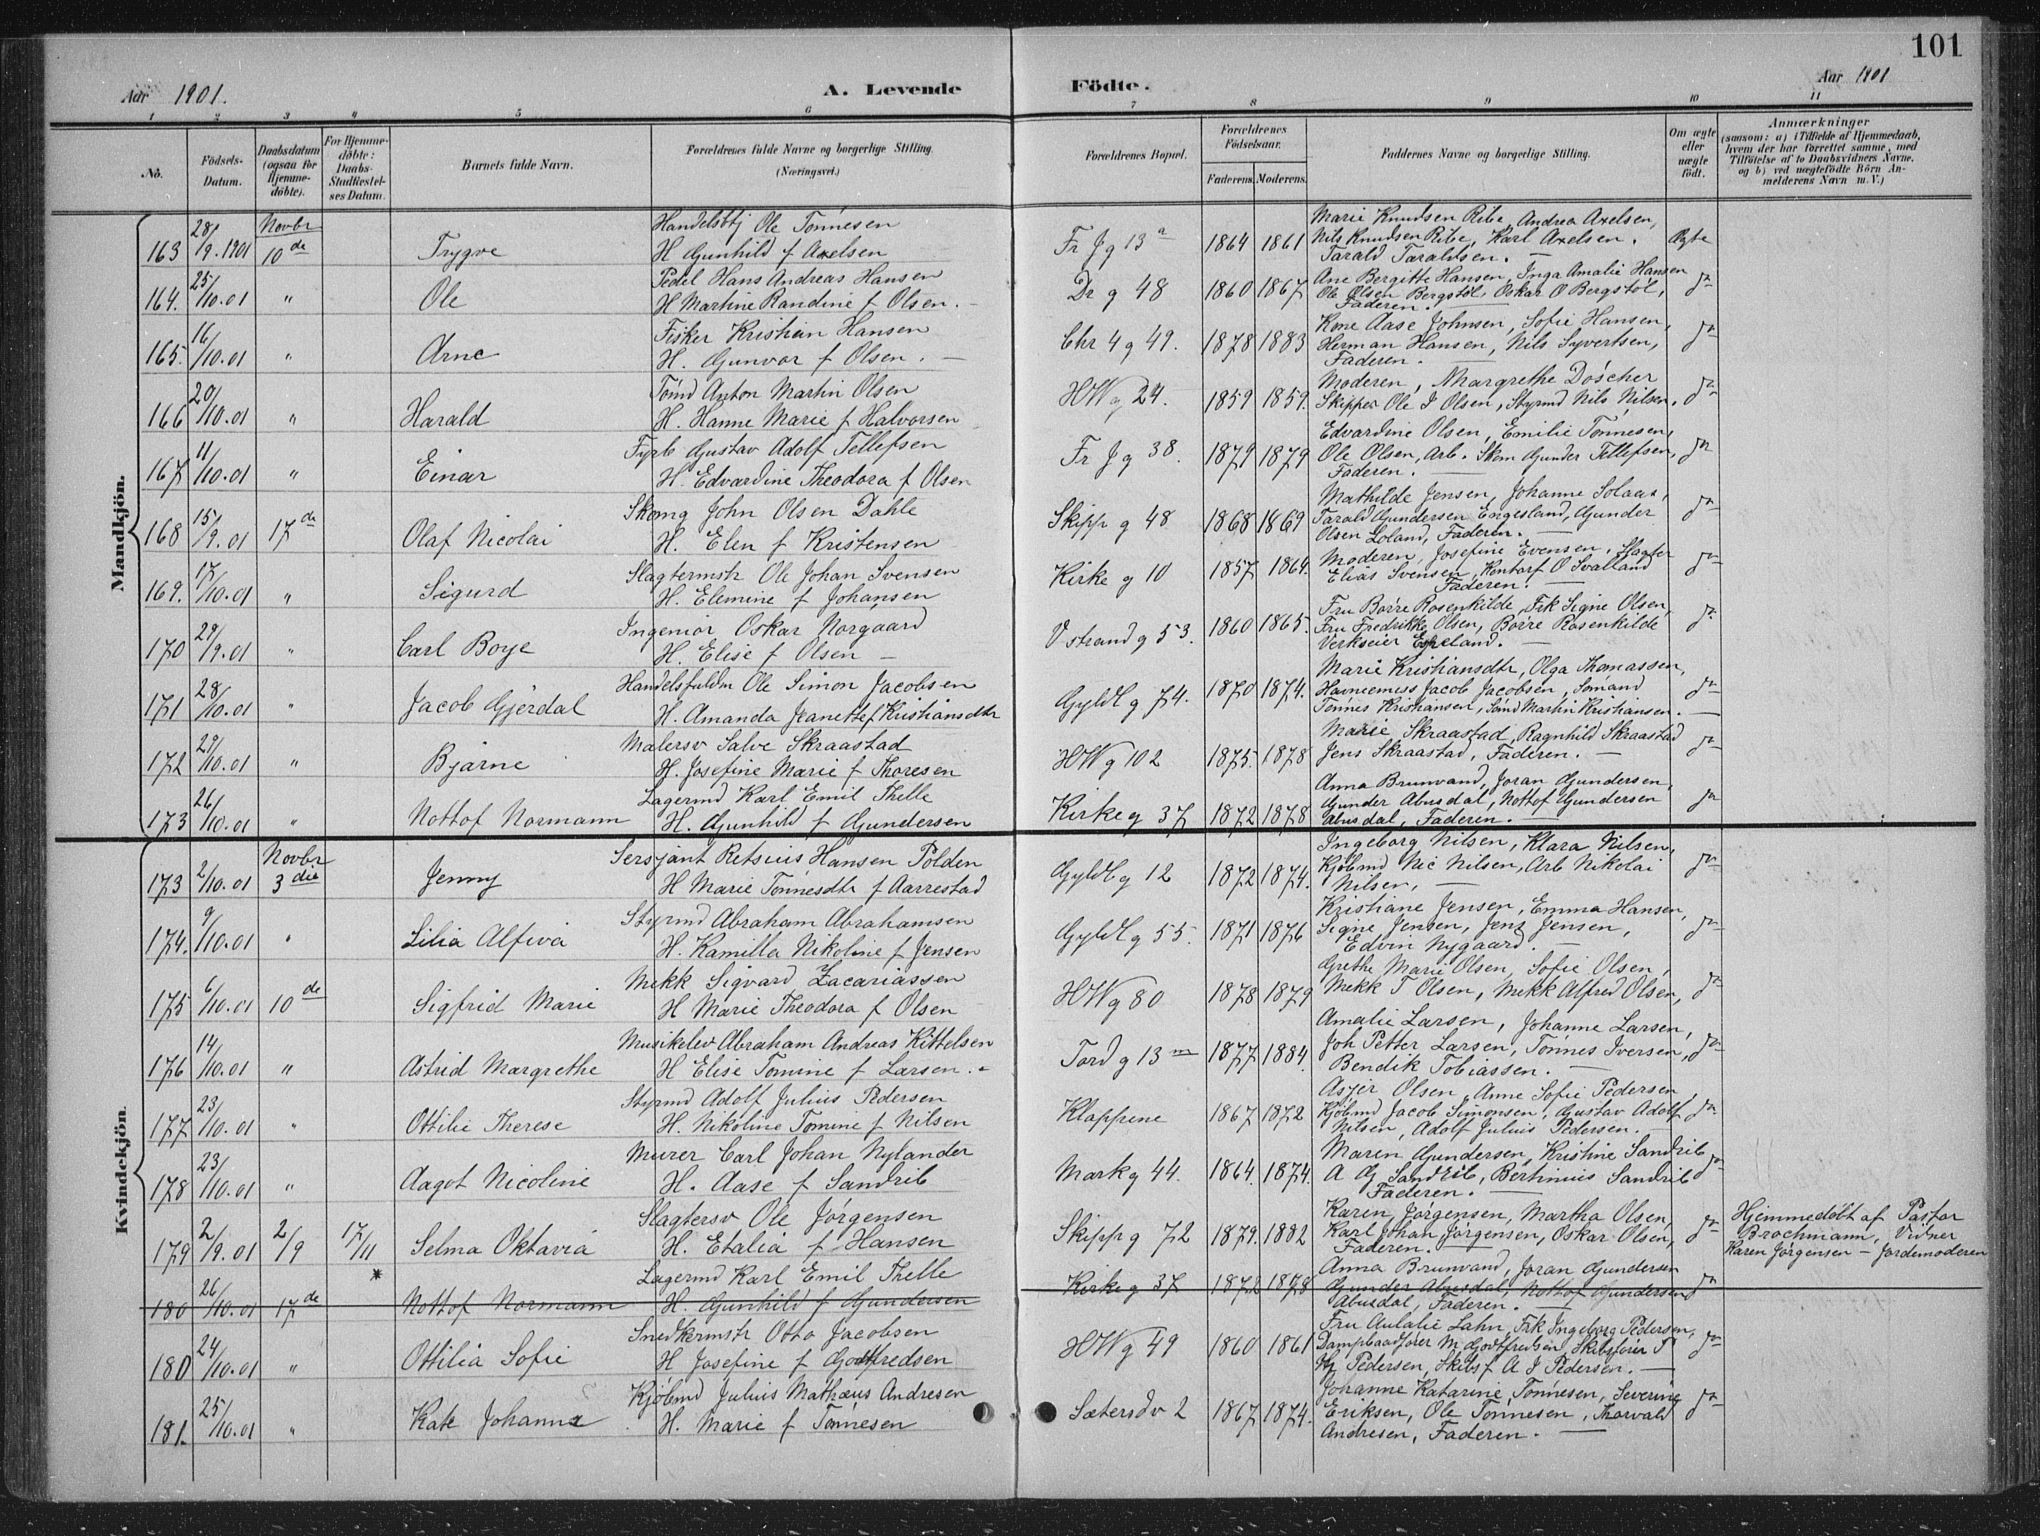 101
Aar 1901.
A. Levende
Födte.
Aar 1901
1 2 3 4 5 6 7 8 9 10 11
No.
Födsels-
Datum.
Daabsdatum
(ogsaa for
Hjemme-
döbte).
For Hjemme-
döbte:
Daabs-
Stadfæstel-
ses Datum.
Barnets fulde Navn.
Forældrenes fulde Navne og borgerlige Stilling.
(Næringsvei.)
Forældrenes Bopæl.
Forældrenes
Födselsaar.
Faderens. Moderens.
Faddernes Navne og borgerlige Stilling.
Om ægte
eller
uægte
födt.
Anmærkninger
(saasom: a) i Tilfælde af Hjemmedaab,
hvem der har forrettet samme, med
Tilföielse af to Daabsvidners Navne,
og b) ved uægtefödte Börn An-
melderens Navn m. V.)
Mandkjön.
163 28/9.1901 Novbr 10de Trygve
Handelsbtj Ole Tønnesen
H Gunhild f Axelsen
Fr J g 13a 1864 1861
Marie Knudsen Ribe, Andrea Axelsen,
Nils Knudsen Ribe, Karl Axelsen.
Tarald Taraldsen. —
Ægte
164. 25/10.01 " Ole
Pedel Hans Andreas Hansen
H Martine Randine f Olsen. —
Dr g 48 1860 1867
Ane Bergitte Hansen, Inga Amalie Hansen
Ole Olsen Bergstøl, Oskar O Bergstøl,
Faderen. —
165. 16/10.01 " Arne
Fisker Kristian Hansen
H. Gunvor f Olsen. —
Chr 4 g 49. 1878 1883
Kone Aase Johnsen, Sofie Hansen,
Herman Hansen, Nils Syvertsen,
Faderen. —
166 20/10.01 " Harald
Tømd Anton Martin Olsen
H. Hanne Marie f Halvorsen
HW g 24. 1859 1859.
Moderen, Margrethe Døscher
Skipper Ole J Olsen, Styrmd Nils Nilsen.
167 11/10.01 " Einar
Fyrb Gustav Adolf Tellefsen
H. Edvardine Theodora f Olsen
Fr J g 38. 1879 1879
Edvardine Olsen, Emilie Tønnesen,
Ole Olsen, Arb. Skom Gunder Tellefsen,
Faderen. —
168 15/9.01 17de Olaf Nicolai
Skomg John Olsen Dahle
H. Elen f Kristensen
Skipp g 48 1868 1869
Mathilde Jensen, Johanne Solaas,
Tarald Gundersen Engesland, Gunder
Olsen Loland, Faderen. —
169. 17/10.01 " Sigurd
Slagtermstr Ole Johan Svensen
H. Elemine f Johansen
Kirke g 10 1857 1864.
Moderen, Josefine Evensen, Slagter
Elias Svensen, Kontorf O Svalland
Faderen. —
170 29/9.01 " Carl Boye
Ingeniør Oskar Norgaard
H. Elise f Olsen —
V strand g 53. 1860 1865.
Fru Børre Rosenkilde, Frk Signe Olsen,
Fru Fredrikke Olsen, Børre Rosenkilde
Verkseier Espeland. —
171 28/10.01 " Jacob Gjerdal
Handelsfuldm Ole Simon Jacobsen
H. Amanda Jeanette f Kristiansdtr
Gyldl g 74. 1870 1874.
Marie Kristiansdtr, Olga Thomassen,
Havneemiss Jacob Jacobsen, Sømand
Tønnes Kristiansen, Sømd Martin Kristiansen. —
172 29/10.01 " Bjarne
Malersv Salve Skraastad
H. Josefine Marie f Thoresen
HW g 102 1875. 1878
Marie Skraastad, Ragnhild Skraastad
Jens Skraastad, Faderen. —
173 26/10.01 " Nottof Normann
Lagermd Karl Emil Thelle
H. Gunhild f Gundersen
Kirke g 37 1872 1878
Anna Brunvand, Joran Gundersen,
Gunder Abusdal, Nottof Gundersen
Abusdal, Faderen. —
Kvindekjön.
173 2/10.01 Novbr 3die Jenny
Sersjant Retsius Hansen Polden
H Marie Tønnesdtr f Aarrestad
Gyldl g 12 1872 1874.
Ingeborg Nilsen, Klara Nilsen,
Kjøbmd Nic Nilsen, Arb Nikolai
Nilsen, —
174. 9/10.01 " Lilia Alfiva
Styrmd Abraham Abrahamsen
H. Kamilla Nikoline f Jensen
Gyldl g 55. 1871 1876
Kristiane Jensen, Emma Hansen,
Signe Jensen, Jens Jensen,
Edvin Nygaard. —
175 6/10.01 10de Sigfrid Marie
Mekk Sigvard Zacariassen
H Marie Theodora f Olsen
HW g 80 1878 1879
Grethe Marie Olsen, Sofie Olsen,
Mekk T Olsen, Mekk Alfred Olsen,
176 14/10.01 " Astrid Margrethe
Musikelev Abraham Andreas Kittelsen
H Elise Tomine f Larsen. —
Tord g 13 1877 1884.
Amalie Larsen, Johanne Larsen,
Joh Petter Larsen, Tønnes Iversen,
Bendik Tobiassen. —
177 23/10.01 " Ottilie Therese
Styrmd Adolf Julius Pedersen
H. Nikoline Tomine f Nilsen
Klappene 1867 1872
Asjer Olsen, Anne Sofie Pedersen
Kjøbmd Jacob Simonsen, Gustav Adolf
Nilsen, Adolf Julius Pedersen. —
178 23/10.01 " Aagot Nicoline
Murer Carl Johan Nylander
H. Aase f Sandrib
Mark g 44. 1864. 1874.
Maren Gundersen, Kristine Sandrib
A G Sandrib, Bertinius Sandrib
Faderen. —
179 2/9.01 2/9 17/11 Selma Oktavia
Slagtersv Ole Jørgensen
H. Etalia f Hansen
Skipp g 72 1879. 1882
Karen Jørgensen, Martha Olsen,
Karl Johan Jørgensen, Oskar Olsen,
Faderen. —
Hjemmedøbt af Pastor
Brochmann, Vidner
Karen Jørgensen – Jordemoderen
*
180 26/10.01 17de Nottof Normann
Lagermd Karl Emil Thelle
H. Gunhild f Gundersen
Kirke g 37 1872 1878
Anna Brunvand, Joran Gundersen
Gunder Abusdal, Nottof Gundersen
Abusdal, Faderen. —
180 24/10.01 " Ottilia Sofie
Snedkermstr Otto Jacobsen
H Josefine f Godtfredsen
HW g 49 1860 1861
Fru Aulalie Lahn, Frk Ingeborg Pedersen,
Dampbaadfører M Godtfredsen, Skibsfører T
Hj Pedersen, Skibsf A J Pedersen. —
181. 25/10.01 " Kate Johanne
Kjøbmd Julius Mathæus Andresen
H. Marie f Tønnesen
Sætersdv 2 1867 1874.
Johanne Katarine Tønnesen, Severine
Eriksen, Ole Tønnesen, Thorvald
Andresen, Faderen. —